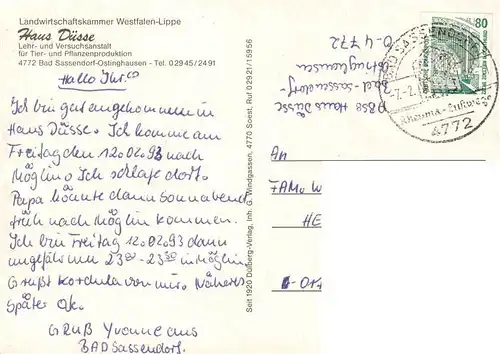 Landwirtschaftskammer Westfalen-Lippe
Haus Düsse
Lehr- und Versuchsanstalt
für Tier- und Pflanzenproduktion
4772 Bad Sassendorf-Ostinghausen · Tel. 02945/2491
Hallo Ihr.
Ich bin gut angekommen in
Haus Düsse. Ich komme am
Freitag den 12.02.93 nach
Möglin. Ich schlafe dort.
Papa könnte dann Sonnabend
früh nach Möglin kommen.
Ich bin Freitag 12.02.93 dann
ungefähr um 23⁰⁰ - 23³⁰ in Möglin.
Grüßt Kordula von mir. Näheres
Später OK.
GRUß Yvonne aus
BAD Sassendorf.
Seit 1920 Dülberg-Verlag, Inh. G. Windgassen, 4770 Soest, Ruf 02921/15956
Haus Düsse
Bad-Sassendorf-
Ostinghausen
O-4772
80
BAD SASSENDORF
4772
AN
FAM. W
HE
O-